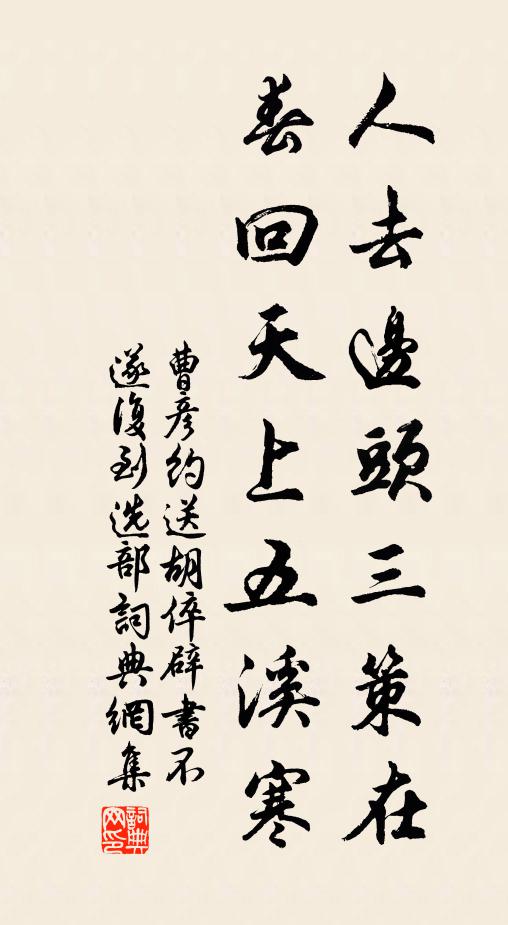 人去邊頭三策在
春回天上五溪寒
曹彦約送胡倅辟書不
遂復到选部詞典網集
詞典网印